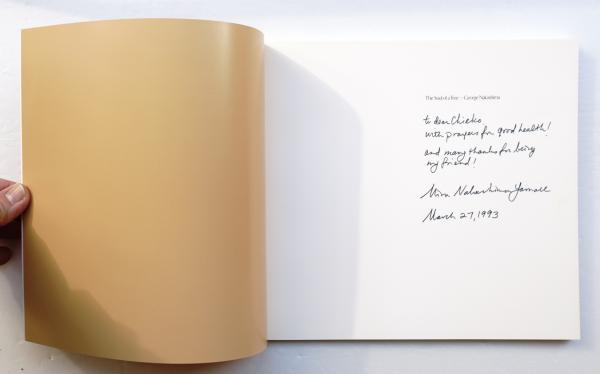 The Soul of a Tree — George Nakashima
to dear Chieko
with prayers for good health!
and many thanks for being
my friend!
Mira Nakashima-Yarnall
March 27, 1993